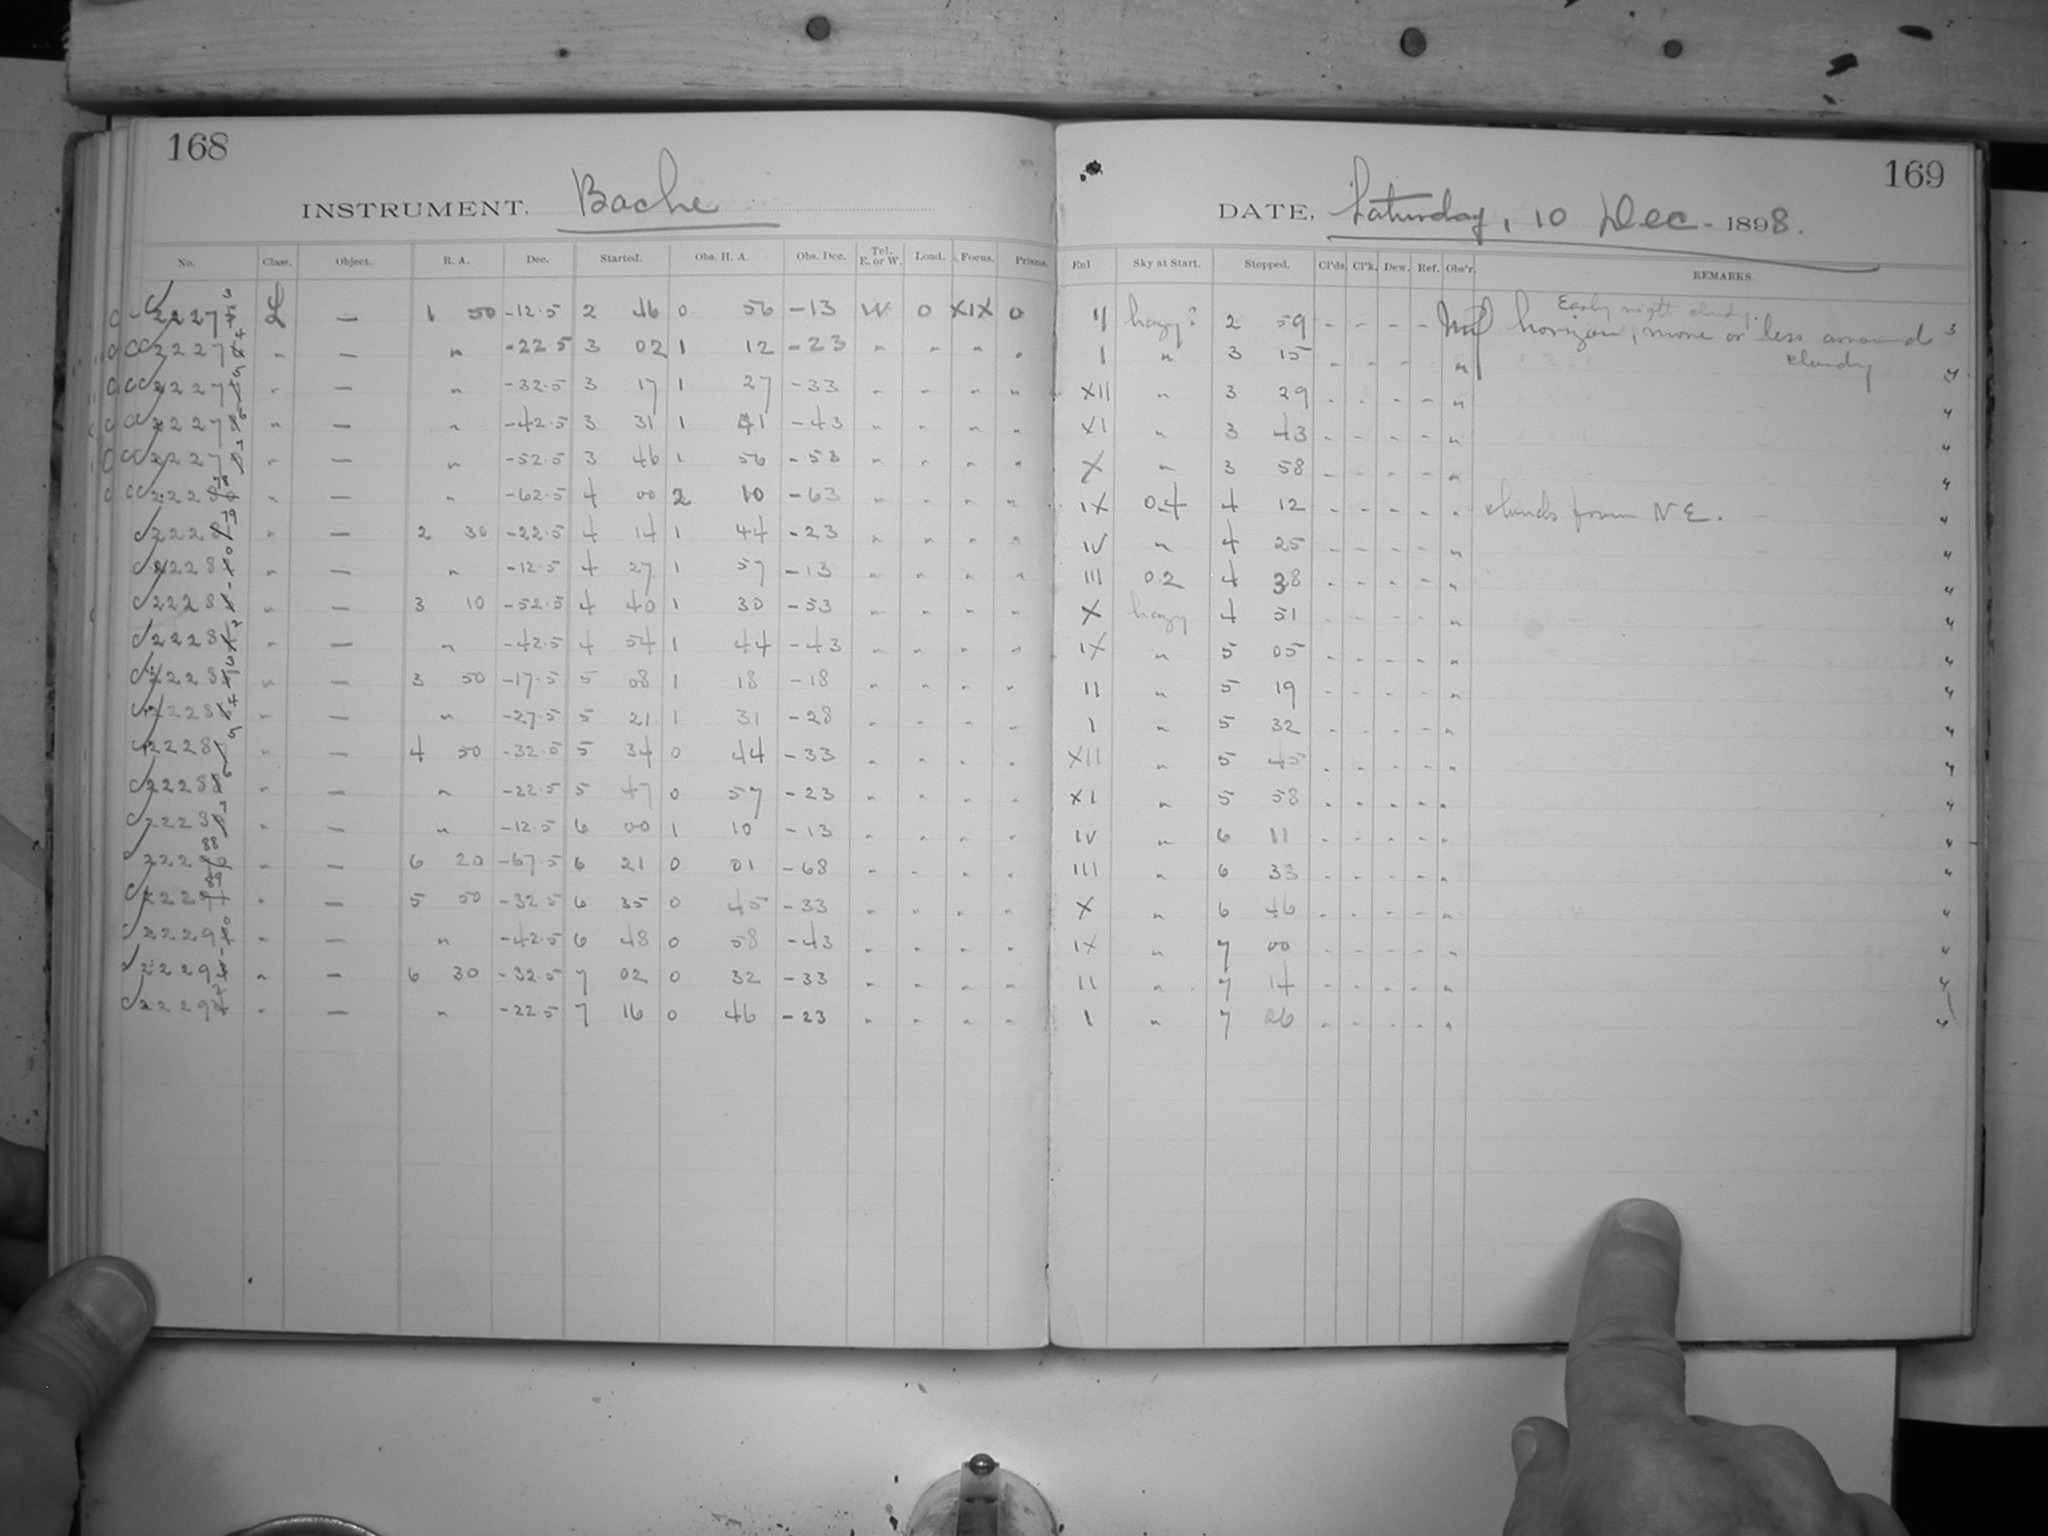 168
INSTRUMENT, Bache
No. Class. Object. R. A. Dec. Started. Obs. H. A. Obs. Dec. Tel. E. or W. Load. Focus. Prisms.
L — 1 50 -12.5 2 46 0 56 -13 W 0 XIX 0
" — " -22.5 3 02 1 12 -23 " " " "
" — " -32.5 3 17 1 27 -33 " " " "
" — " -42.5 3 31 1 41 -43 " " " "
" — " -52.5 3 46 1 56 -53 " " " "
" — " -62.5 4 00 2 10 -63 " " " "
" — 2 30 -22.5 4 14 1 44 -23 " " " "
" — " -12.5 4 27 1 57 -13 " " " "
" — 3 10 -52.5 4 40 1 30 -53 " " " "
" — " -42.5 4 54 1 44 -43 " " " "
" — 3 50 -17.5 5 08 1 18 -18 " " " "
" — " -27.5 5 21 1 31 -28 " " " "
" — 4 50 -32.5 5 34 0 44 -33 " " " "
" — " -22.5 5 47 0 57 -23 " " " "
" — " -12.5 6 00 1 10 -13 " " " "
" — 6 20 -67.5 6 21 0 01 -68 " " " "
" — 5 50 -32.5 6 35 0 45 -33 " " " "
" — " -42.5 6 48 0 58 -43 " " " "
" — 6 30 -32.5 7 02 0 32 -33 " " " "
" — " -22.5 7 16 0 46 -23 " " " "
169
DATE, Saturday, 10 Dec. 1898.
Enl Sky at Start. Stopped. Cl'ds. Cl'k. Dew. Ref. Obs'r. REMARKS.
Early night cloudy.
II hazy? 2 59 - - - - horizon, more or less around 3
cloudy
I " 3 15 - - - - " "
XII " 3 29 - - - - " "
XI " 3 43 - - - - " "
X " 3 58 - - - - " "
IX 04 4 12 - - - - " clouds from N E. "
IV " 4 25 - - - - " "
III 02 4 38 - - - - " "
X hazy 4 51 - - - - " "
IX " 5 05 - - - - " "
II " 5 19 - - - - " "
I " 5 32 - - - - " "
XII " 5 45 - - - - " "
XI " 5 58 - - - - " "
IV " 6 11 - - - - " "
III " 6 33 - - - - " "
X " 6 46 - - - - " "
IX " 7 00 - - - - " "
II " 7 14 - - - - " "
I " 7 26 - - - - " "